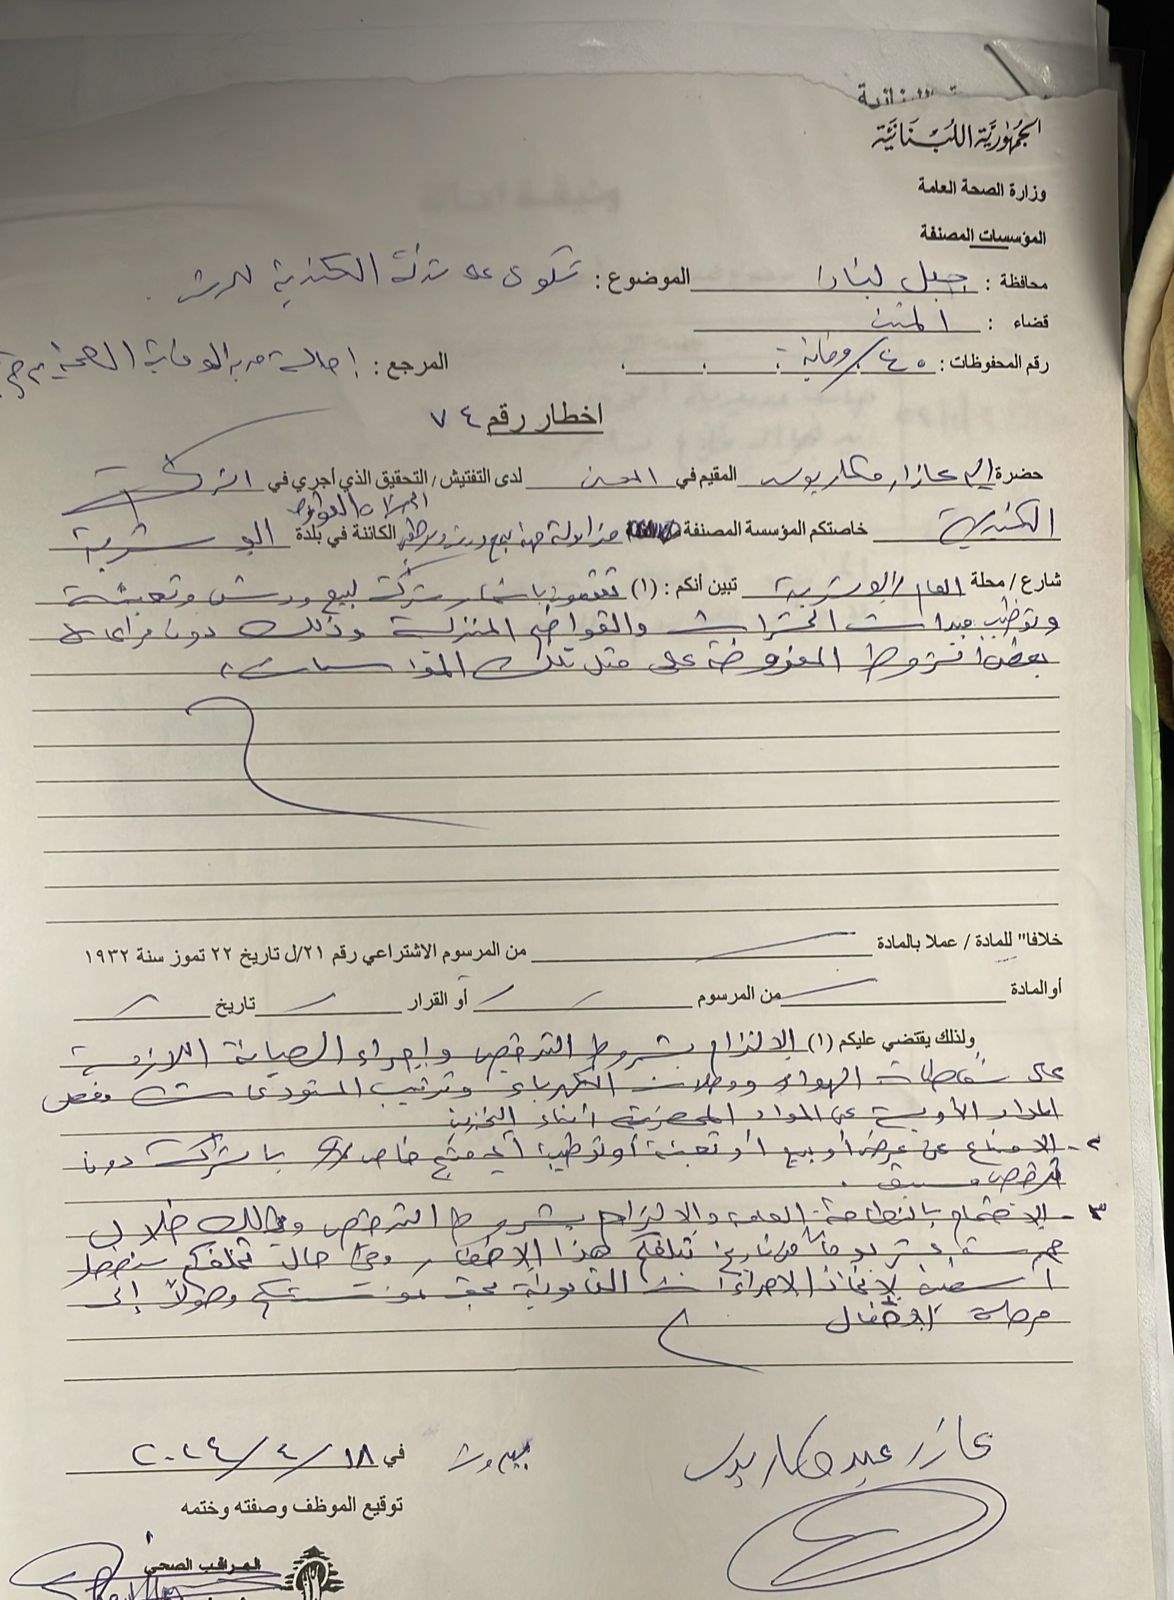 الجمهورية اللبنانية
وزارة الصحة العامة
المؤسسات المصنفة
محافظة : جبل لبنان الموضوع : شكوى على شركة الكندية للرش
قضاء : المتن
رقم المحفوظات : ٤٠/وقاية المرجع : احالة الوقاية الصحية
اخطار رقم ٧٤
حضرة السيد عازار مكاريوس المقيم في لدى التفتيش / التحقيق الذي أجري في الشركة
الكندية خاصتكم المؤسسة المصنفة مزاولة مهنة بيع ورش الحشرات والقوارض الكائنة في بلدة البوشرية
شارع / محلة العام البوشرية تبين أنكم : (١) تقومون باستثمار شركة لبيع ورش وتعبئة
وتوظيب مبيدات الحشرات والقوارض المنزلية وذلك دون مراعاة
بعض الشروط المفروضة على مثل تلك المؤسسات.
خلافا" للمادة / عملا بالمادة من المرسوم الاشتراعي رقم ٢١/ل تاريخ ٢٢ تموز سنة ١٩٣٢
أو المادة من المرسوم أو القرار تاريخ
ولذلك يقتضي عليكم (١) الالتزام بشروط الترخيص واجراء الصيانة اللازمة
على شفاطات الهواء ووصلات الكهرباء وترتيب المستودعات وفصل
المواد الأولية عن المواد المحضرة أثناء التخزين
٢- الامتناع عن عرض أو بيع أو تعبئة أو توظيب أي منتج خاص بالشركة دون
ترخيص مسبق.
٣- الاهتمام بالنظافة العامة والالتزام بشروط الترخيص وذلك خلال
خمسة عشر يوماً من تاريخ تبلغكم هذا الاخطار وفي حال تخلفكم سنضطر
آسفين لاتخاذ الاجراءات القانونية بحق مؤسستكم وصولاً إلى
مرحلة الاقفال
عازار عبده مكاريوس
بيروت في ١٨/٤/٢٠٢٤
توقيع الموظف وصفته وختمه
المراقب الصحي